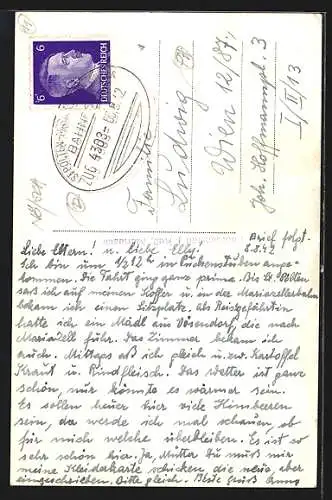 6 6
DEUTSCHES REICH
ST. PÖLTEN
BAHN
ZUG 4303
Familie
Ludwig
Wien 12/87,
Joh. Hoffmannpl. 3
I/II/13
Brief folgt.
Liebe Eltern! u. Liebe Elly! 8.8.42
Ich bin um 1/2 12 h in Puchenstuben ange-
kommen. Die Fahrt ging ganz prima. Bis St. Pölten
saß ich auf meinen Koffer u. in der Mariazellerbahn
bekam ich einen Sitzplatz. Als Reisegefährtin
hatte ich ein Mädl aus Vösendorf, die nach
Mariazell fuhr. Das Zimmer bekam ich
auch. Mittags aß ich gleich u. zw. Kartoffel
Kraut u. Rindfleisch. Das Wetter ist ganz
schön, nur könnte es wärmer sein.
Es sollen heuer hier viele Himbeeren
sein, da werde ich mal schauen, ob
für mich welche überbleiben. Es ist so
sehr schön hier. Ja, Mutter du mußt mir
meine Kleiderkarte schicken, die neue, aber
eingeschrieben. Bitte gleich. Beste Grüße Anny